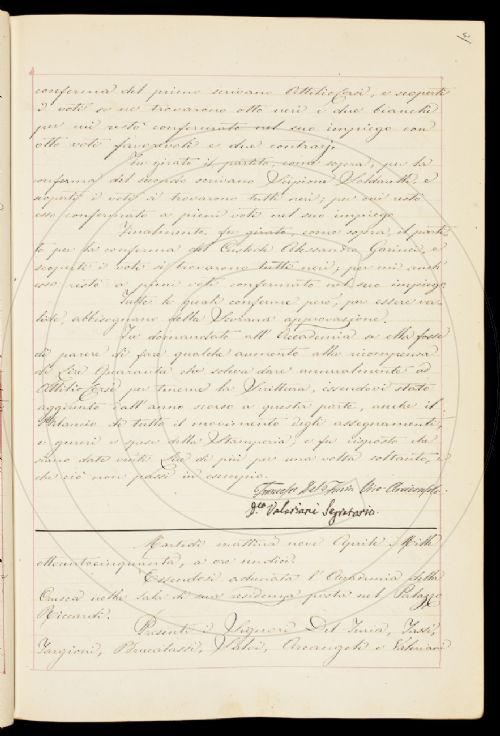 conferma del primo scrivano Attilio Orsi, e scoperti
i voti se ne trovarono otto neri e due bianchi
per cui restò confermato nel suo impiego con
otto voti favorevoli e due contrarj.
Fu girato il partito, come sopra, per la
conferma del secondo scrivano Scipione Soldaretti, e
scoperti i voti si trovarono tutti neri; per cui restò
esso confermato a pieni voti nel suo impiego.
Finalmente fu girato, come sopra, il parti
to per la conferma del Custode Alessandro, e
scoperti i voti si trovarono tutti neri; per cui anch
esso restò a pieni voti confermato nel suo impiego
Tutte le quali conferme però, per essere va
lide, abbisognano della Sovrana approvazione.
Fu domandato all' Accademia se ella fosse
di parere di fare qualche aumento alla ricompensa
di Lire Quaranta che soleva dare annualmente ad
Attilio Orsi per tenere la Scrittura, essendosi stato
aggiunto dall' anno scorso a questa parte, anche il
Bilancio di tutto il movimento degli assegnamenti,
e oneri e spese della Stamperia, e fu risposto che
siano date venti Lire di più per una volta soltanto, e
che ciò non passi in esempio.
Francesco Del Furia Vice-Arciconsolo
F.co Valeriani Segretario.
Martedì mattina nove Aprile Mille
ottocentocinquanta, a ore undici.
Essendosi adunata l' Accademia della
Crusca nella sala di sua residenza posta nel Palazzo
Riccardi.
Presenti i Signori Del Furia, Tassi,
Targioni, Brucalassi, Salvi, Arcangeli e Valeriani